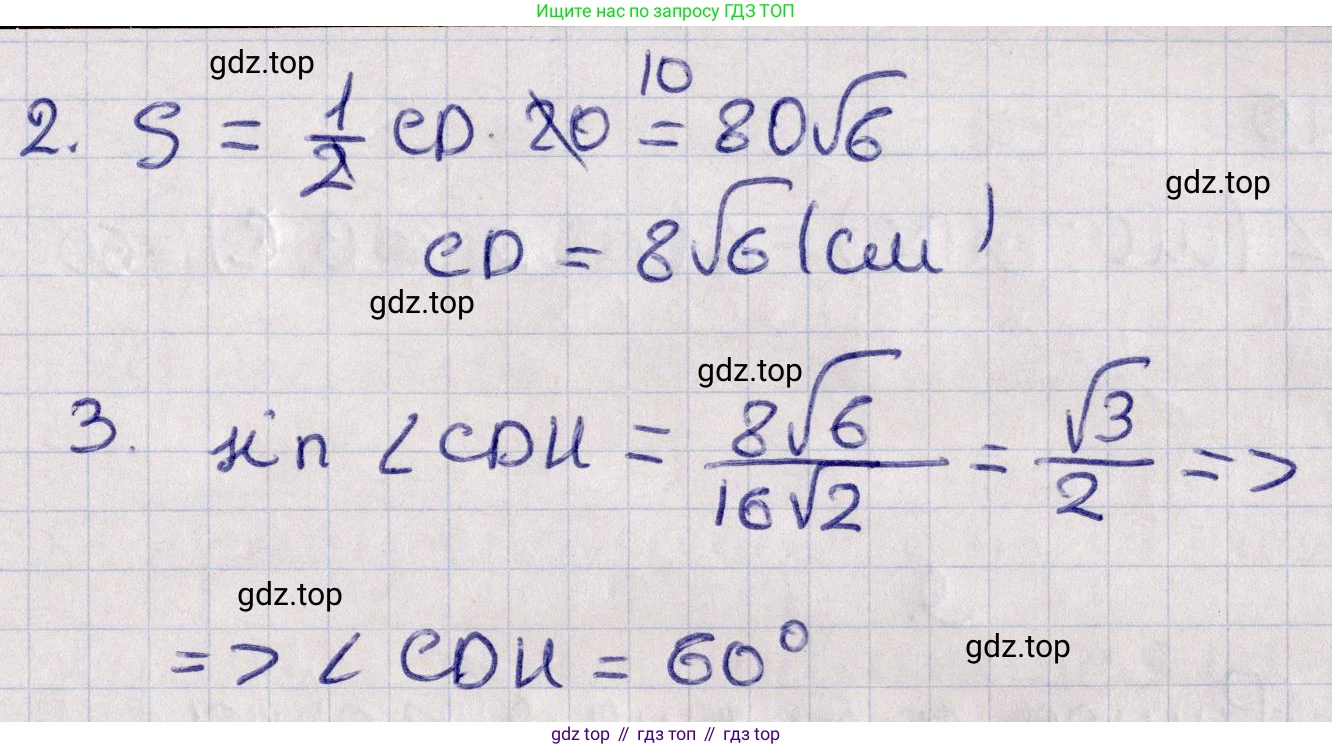 Ищите нас по запросу ГДЗ ТОП
gdz.top
2. S = 1/2 CD · 20 10 = 80√6
gdz.top
CD = 8√6 (см)
gdz.top
gdz.top
3. sin ∠CDH = 8√6/16√2 = √3/2 =>
gdz.top
=> ∠CDH = 60°
gdz.top
gdz top // гдз топ // гдз top